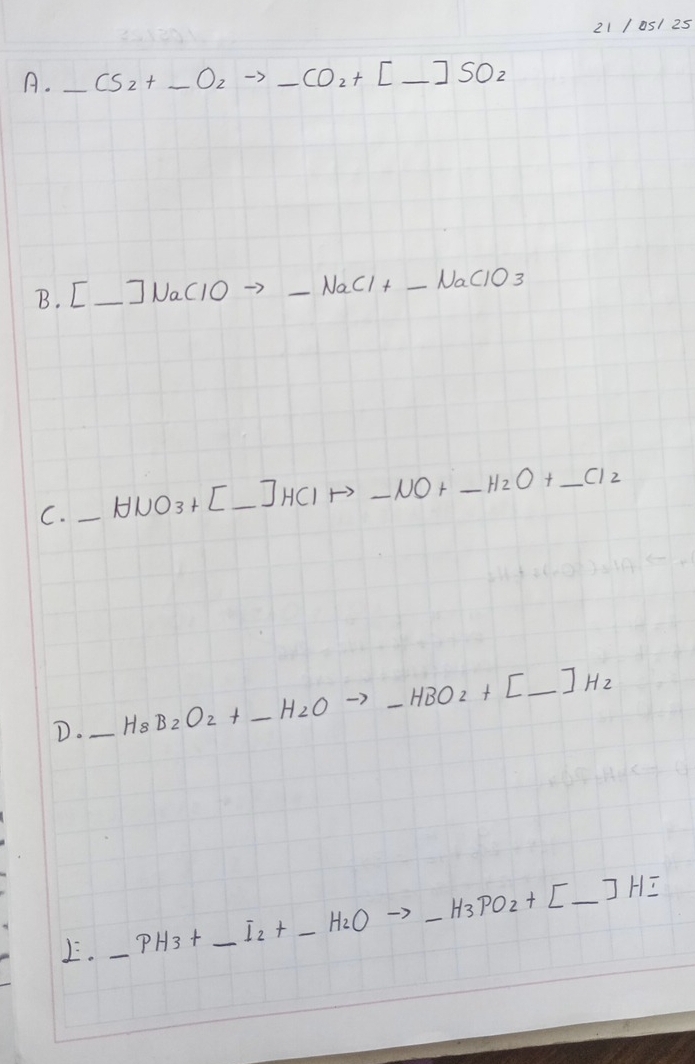 21 / 05 / 25
A. _ CS2 + _ O2 -> _ CO2 + [ _ ] SO2
B. [ _ ] NaClO -> _ NaCl + _ NaClO3
C. _ HNO3 + [ _ ] HCl -> _ NO + _ H2O + _ Cl2
D. _ H8B2O2 + _ H2O -> _ HBO2 + [ _ ] H2
E. _ PH3 + _ I2 + _ H2O -> _ H3PO2 + [ _ ] HI